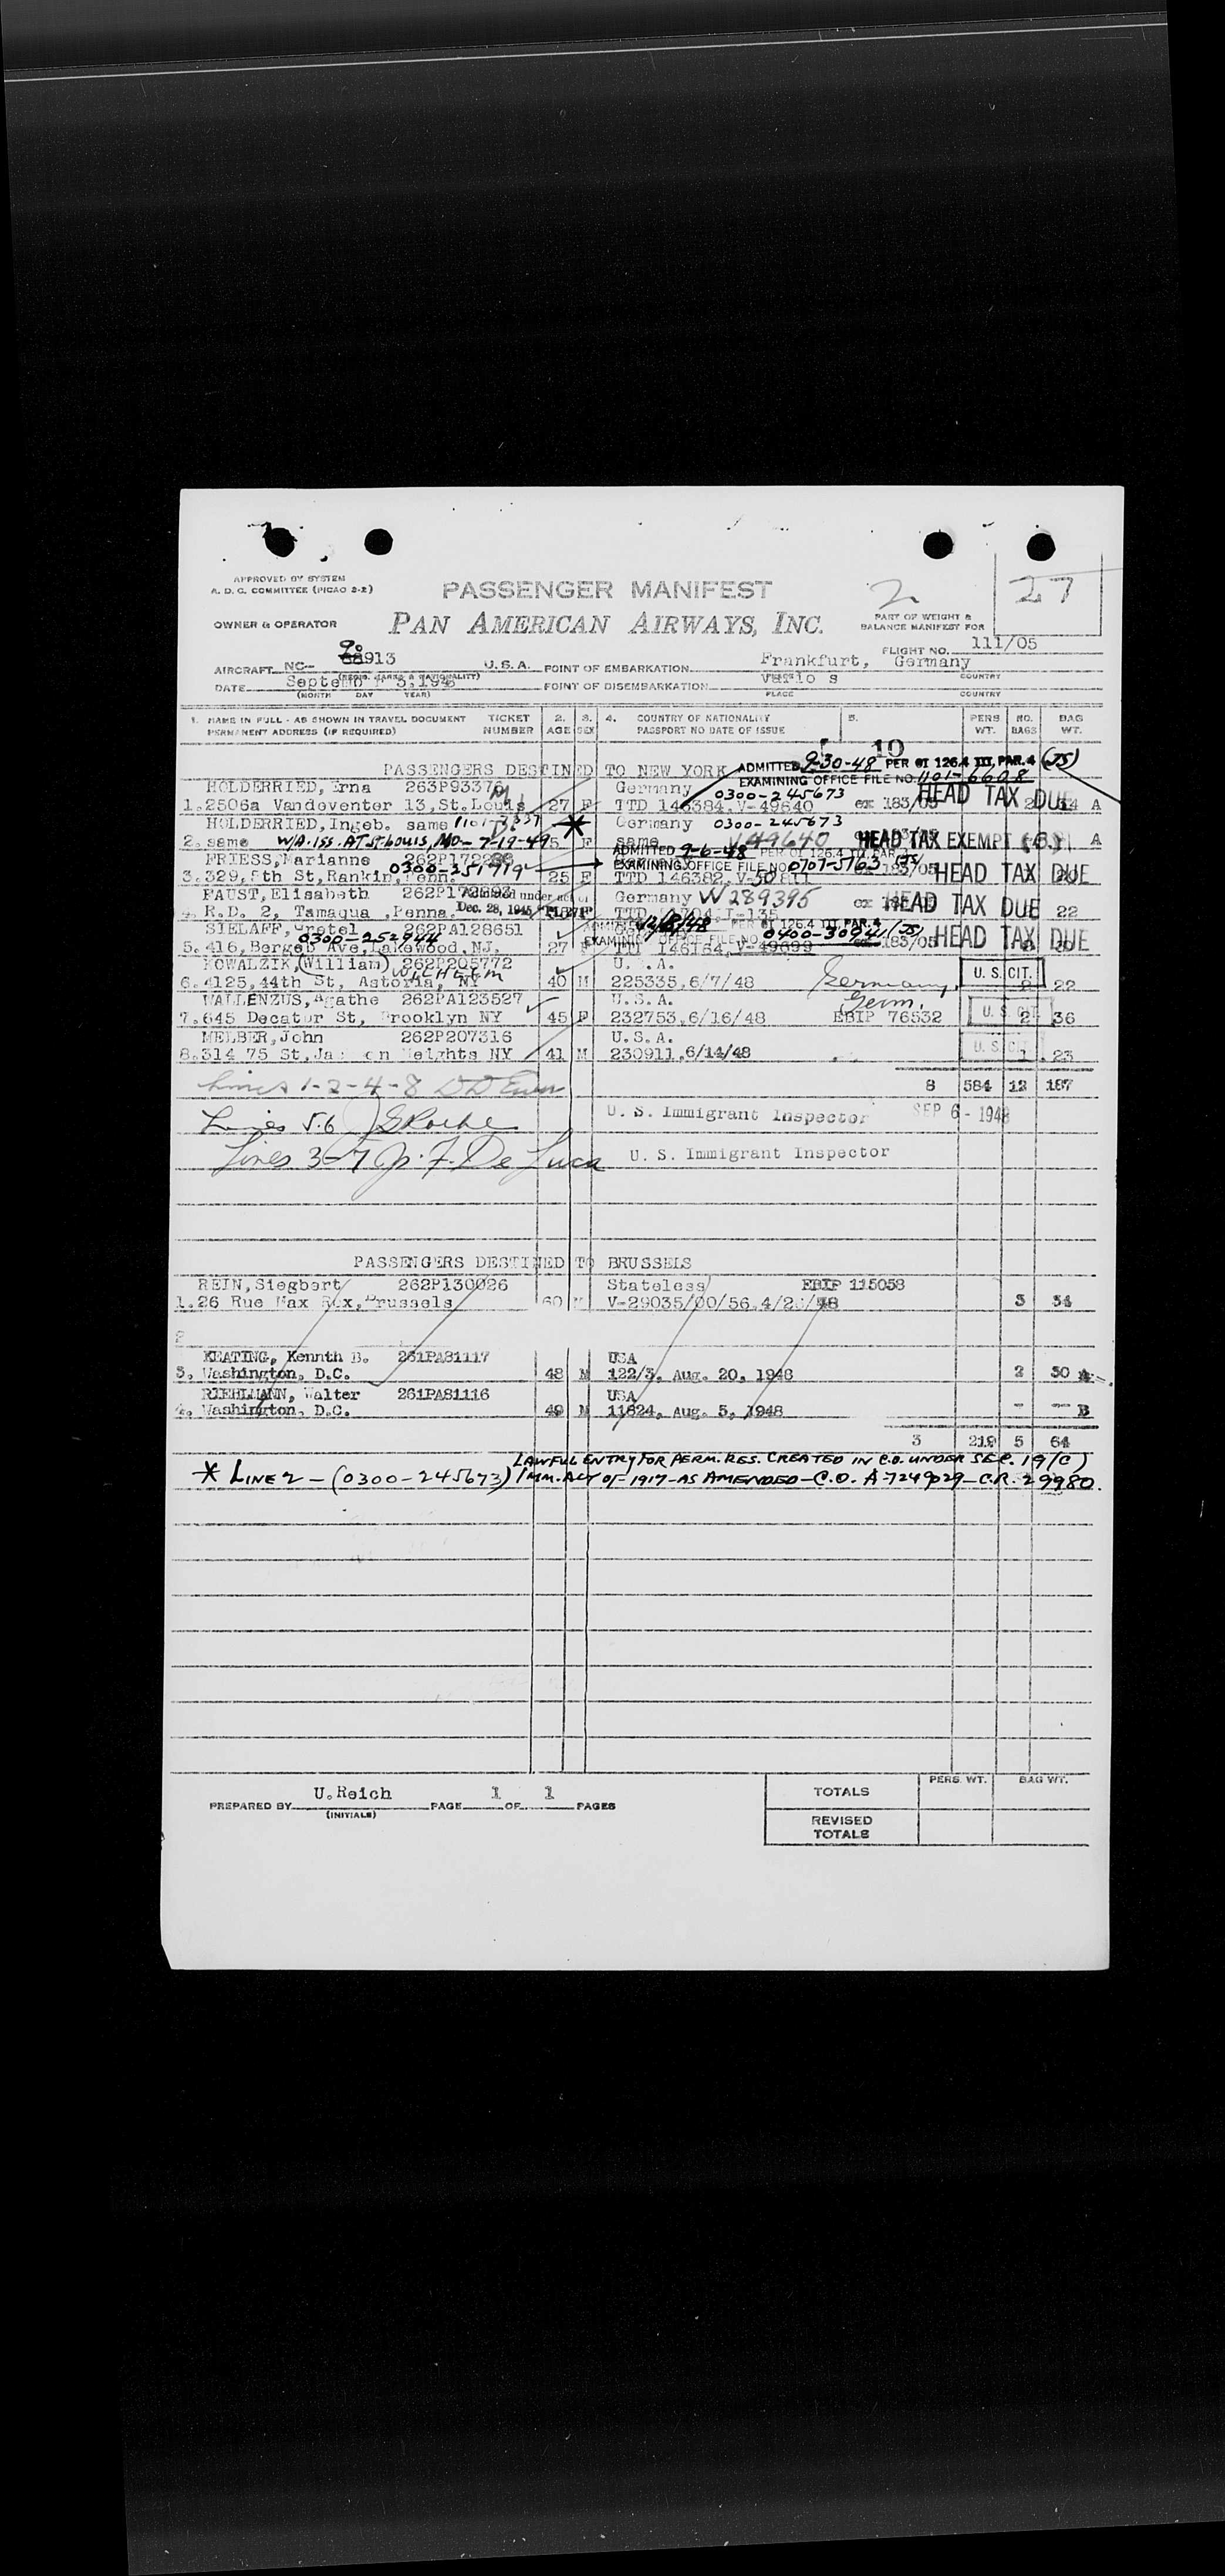 APPROVED BY SYSTEM
A. D. C. COMMITTEE (PICAO 2-2)
PASSENGER MANIFEST
2
27
OWNER & OPERATOR
PAN AMERICAN AIRWAYS, INC.
PART OF WEIGHT &
BALANCE MANIFEST FOR
FLIGHT NO. 111/05
AIRCRAFT NC- 88913
U.S.A. POINT OF EMBARKATION Frankfurt, Germany
COUNTRY
DATE
(MONTH DAY YEAR)
POINT OF DISEMBARKATION
PLACE COUNTRY
1. NAME IN FULL - AS SHOWN IN TRAVEL DOCUMENT TICKET 2. 3. 4. COUNTRY OF NATIONALITY 5. PERS NO. BAG
PERMANENT ADDRESS (IF REQUIRED) NUMBER AGE SEX PASSPORT NO DATE OF ISSUE WT. BAGS WT.
10
PASSENGERS DESTINED TO NEW YORK ADMITTED 9-30-48 PER OI 126.4 III, PAR. 4 (JS)
EXAMINING OFFICE FILE NO. 1101-6608
HOLDERRIED, Erna Germany 0300-245673 HEAD TAX DUE
1. 2506a Vandeventer 13, St. Louis 27 F TTD 146384, V-49640 A
HOLDERRIED, Ingeb. same Germany 0300-245673
2. same W/A. ISS. AT ST. LOUIS, MO- 7-19-49 * F same V49640 HEAD TAX EXEMPT A
ADMITTED 9-6-48
FRIESS, Marianne EXAMINING OFFICE FILE NO. 0707-5763 (JS)
0300-251919
3. 329, 8th St, Rankin, Penn. 25 F TTD 146382, HEAD TAX DUE
FAUST, Elisabeth Germany W 289395
4. R.D. 2, Tamaqua, Penna. Dec. 28, 1945 HEAD TAX DUE 22
SIELAFF, 262PA128651
0300-252944 EXAMINING OFFICE FILE NO. 0400-30941 (JS)
5. 416, Bergen Ave, Lakewood, NJ. 27 HEAD TAX DUE
KOWALZIK, (William) 262P205772 U.S.A. U. S. CIT.
WILHELM
6. 4125, 44th St, Astoria, NY 40 M 225335, 6/7/48 Germany. 2 22
WALLENZUS, Agathe 262PA123527 U.S.A. Germ. U. S. CIT.
7. 645 Decator St, Brooklyn NY 45 F 232753, 6/16/48 EBIP 76532 2 36
MELBER, John 262P207316 U.S.A. U. S. CIT.
8. 314 75 St, Jackson Heights NY 41 M 230911, 6/14/48 1 23
8 584 12 187
Lines 1-2-4-8
Lines 5.6
U. S. Immigrant Inspector SEP 6 - 1948
Lines 3-7 J. F. De Luca U. S. Immigrant Inspector
PASSENGERS DESTINED TO BRUSSELS
REIN, Siegbert 262P130026 Stateless EBIP 115058
1. 26 Rue Max Rox, Brussels 60 M 3 34
2
KEATING, Kennth B. 261PA81117 USA
3. Washington, D.C. 48 M 122/3, Aug. 20, 1948 2 30 A
RIEHLMANN, Walter 261PA81116 USA
4. Washington, D.C. 49 M 11824, Aug. 5, 1948 - - B
3 219 5 64
LAWFUL ENTRY FOR PERM. RES. CREATED IN C.O. UNDER SEC. 19(C)
* LINE 2 - (0300-245673) IMM. ACT OF 1917-AS AMENDED-C.O. A-7249029-C.R. 29980.
PREPARED BY U. Reich PAGE 1 OF 1 PAGES
(INITIALS)
PERS. WT. BAG WT.
TOTALS
REVISED
TOTALS